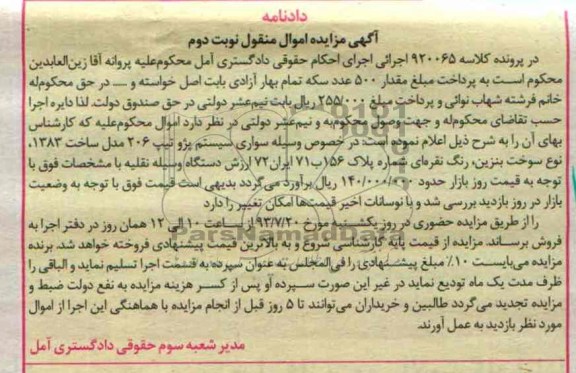 دادنامه
آگهی مزایده اموال منقول نوبت دوم
در پرونده کلاسه ۹۲۰۰۶۵ اجرائی اجرای احکام حقوقی دادگستری آمل محکوم‌علیه پروانه آقا زین‌العابدین
محکوم است به پرداخت مبلغ مقدار ۵۰۰ عدد سکه تمام بهار آزادی بابت اصل خواسته و ... در حق محکوم‌له
خانم فرشته شهاب نوائی و پرداخت مبلغ ۲۵۵/۰۰۱ ریال بابت نیم‌عشر دولتی در حق صندوق دولت. لذا دایره اجرا
حسب تقاضای محکوم‌له و جهت وصول محکوم‌به و نیم‌عشر دولتی در نظر دارد اموال محکوم‌علیه که کارشناس
بهای آن را به شرح ذیل اعلام نموده است: در خصوص وسیله سواری سیستم پژو تیپ ۲۰۶ مدل ساخت ۱۳۸۳،
نوع سوخت بنزین، رنگ نقره‌ای شماره پلاک ۱۵۶ب۷۱ ایران۷۲ ارزش دستگاه وسیله نقلیه با مشخصات فوق با
توجه به قیمت روز بازار حدود ۱۴۰/۰۰۰/۰۰۰ ریال برآورد می‌گردد بدیهی است قیمت فوق با توجه به وضعیت
بازار در روز بازدید بررسی شد و با نوسانات اخیر قیمت‌ها امکان تغییر را دارد
را از طریق مزایده حضوری در روز یکشنبه مورخ ۹۳/۷/۲۰ از ساعت ۱۰ الی ۱۲ همان روز در دفتر اجرا به
فروش برساند. مزایده از قیمت پایه کارشناسی شروع و به بالاترین قیمت پیشنهادی فروخته خواهد شد. برنده
مزایده می‌بایست ۱۰٪ مبلغ پیشنهادی را فی‌المجلس به عنوان سپرده به قسمت اجرا تسلیم نماید و الباقی را
ظرف مدت یک ماه تودیع نماید در غیر این صورت سپرده او پس از کسر هزینه مزایده به نفع دولت ضبط و
مزایده تجدید می‌گردد طالبین و خریداران می‌توانند تا ۵ روز قبل از انجام مزایده با هماهنگی این اجرا از اموال
مورد نظر بازدید به عمل آورند.
مدیر شعبه سوم حقوقی دادگستری آمل